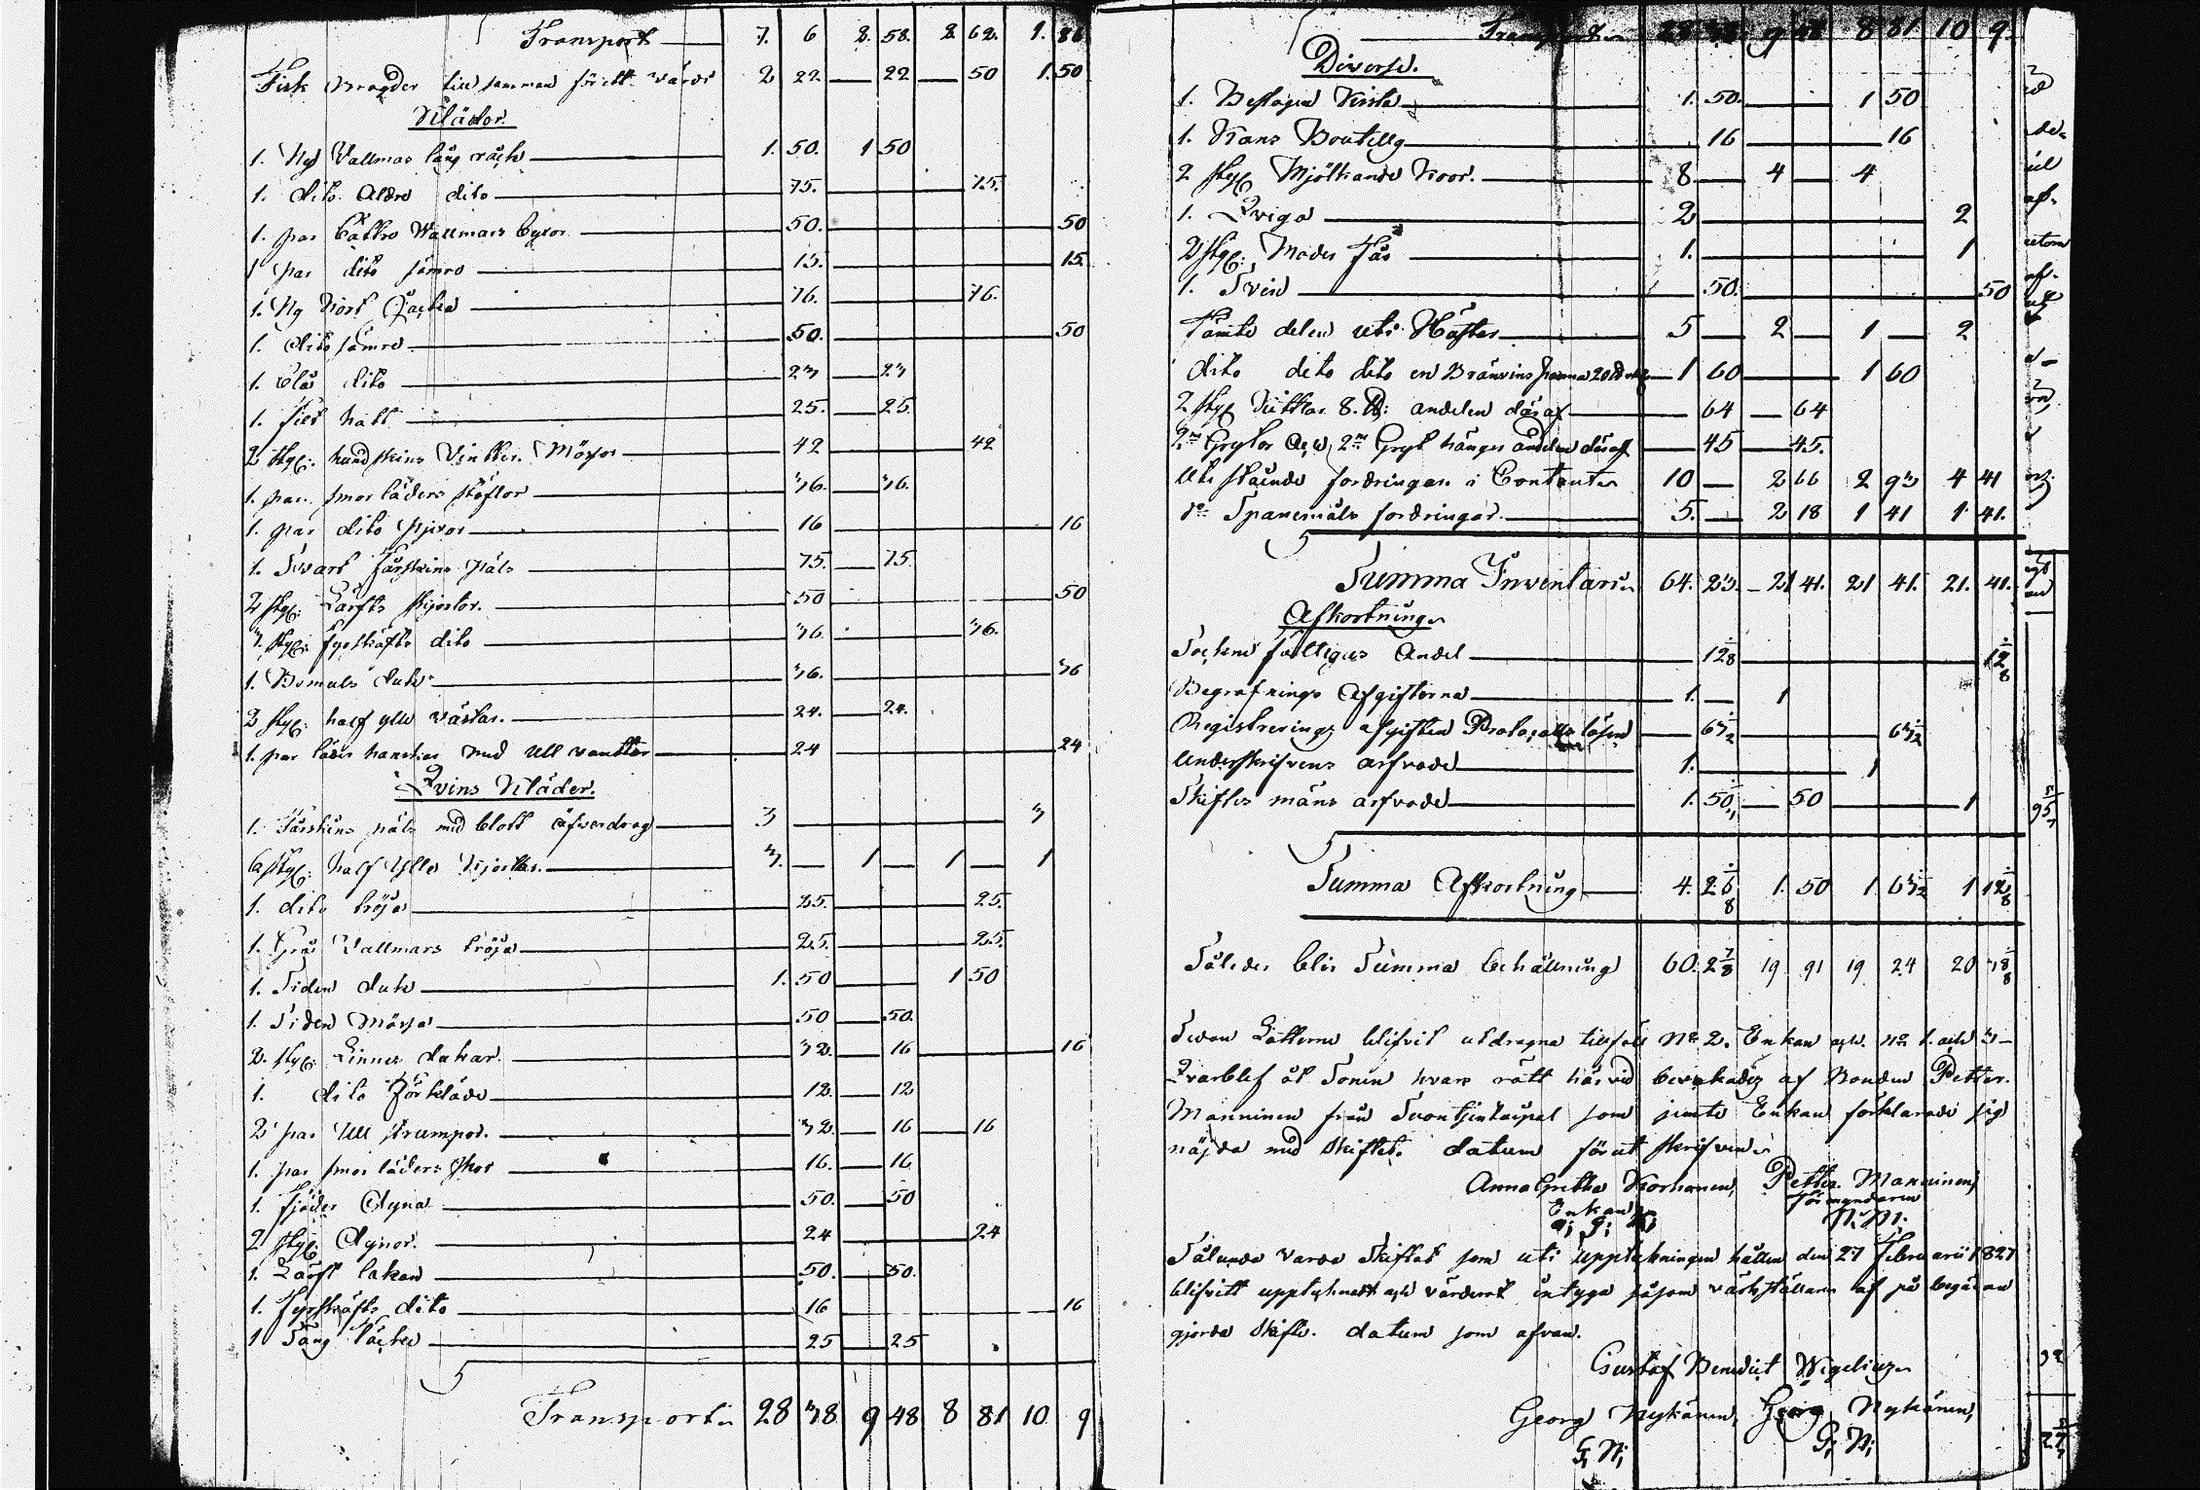 Transport 7. 6 2. 58. 2 62. 1. 86
Fisk bragder till samman för ett värde 2 22 22 50 1. 50
Kläder.
1. Ny Vallmar lång råck 1. 50. 1 50
1. dito äldre dito 75. 75.
1. par bättre Wallmars byxor 50. 50
1 par dito sämre 15. 15.
1. Ny kort Jacka 36. 36.
1. dito sämre 50. 50
1. blå dito 23 23
1. filt hatt 25. 25.
2 styc: hundskins Vintter Mössor 42 42
1. par smorläders stöflor 36. 36.
1. par dito skor 16 16
1. Svart Fårskins päls 75. 75
2 styc: Lärfts skjortor. 50 50
3. styc: fyrskäfts dito 36. 36.
1. Bomuls duk 36. 36
2 styc: half ylle västar. 24. 24.
1. par läder hanskar med Ull vanttar 24 24
Qvins Kläder.
1. Fårskins päls med blått öfverdrag 3 3
6 styc: half Ylle Kjortlar. 3. 1 1 1
1. dito tröja 25. 25.
1. Grå Vallmars tröja 25. 25.
1. Siden duk 1. 50 1 50
1. Siden Mössa 50 50.
2. styc: Linne dukar. 32. 16 16
1. dito förkläde 12. 12
2 par Ull strumpor. 32. 16 16
1. par smorläders skor 16. 16
1. fjäder dyna 50. 50
2 styc: dynor. 24 24
1. Lärft lakan 50. 50.
1. fyrskäfts dito 16 16
1 Säng täcke 25 25
Transport 28 38 9 48 8 81 10 9
Transport 28 38 9 48 8 81 10 9.
Diverse.
1. Beslagen Kista 1. 50. 1 50
1. Kans Boutellg 16 16
2 styc Mjölkande Koor. 8 4 4
1. Qviga 2 2
2 styc: Moder Får 1. 1
1. Svin 50. 50
Fämte delen uti Häster 5 2 1 2
dito dito dito en Bränvins panna 20 1 60 1 60
2 styc 8. andelen däraf 64 64
2ne Grytor och 2ne Gryt hänger andelen däraf 45 45.
Ute stående fordringar i Contanter 10 2 66 2 93 4 41
do Spanemåls fordringar. 5. 2 18 1 41 1. 41.
Summa Inventarier 64. 23. 21 41. 21 41. 21. 41.
Afkortning
Sockne fattigas Andel 12 5/8 12 5/8
Begrafnings Afgifterna 1. 1
Registrerings afgiften Protocolls lösen 63 1/2 63 1/2
Underskrifvens arfvode 1. 1
Skiftes mäns arfvode 1. 50 50 1
Summa Afkortning 4. 26 1/8 1. 50 1 63 1/2 1 12 5/8
Således blir Summa behållning 60. 2 7/8 19 91 19 24 20 38 3/8
Sedan Lotterna blifvit utdragna tillföll No 2. Enkan och No 1. och 3
Qvarblef åt Sonen hvars rätt härvid bevakades af Bonden Petter
Manninen från Suontjentaipal som jemte Enkan förklarade sig
nöjda med Skiftet. datum förut skrifven
Anna Gretha Korhonen, Petter Manninen,
Enkan förmyndaren
A; G; K; P: M:
Sålunda varda Skiftet som uti upptekningen hållen den 27 februarii 1827
blifvitt upptecknadt och värderat intyga såsom värkställare af på begäran
gjorda Skifte. datum som ofvan.
Gustaf Benedict Wigelius
Georg Nykänen, Georg Nykänen,
G; N; G; N;